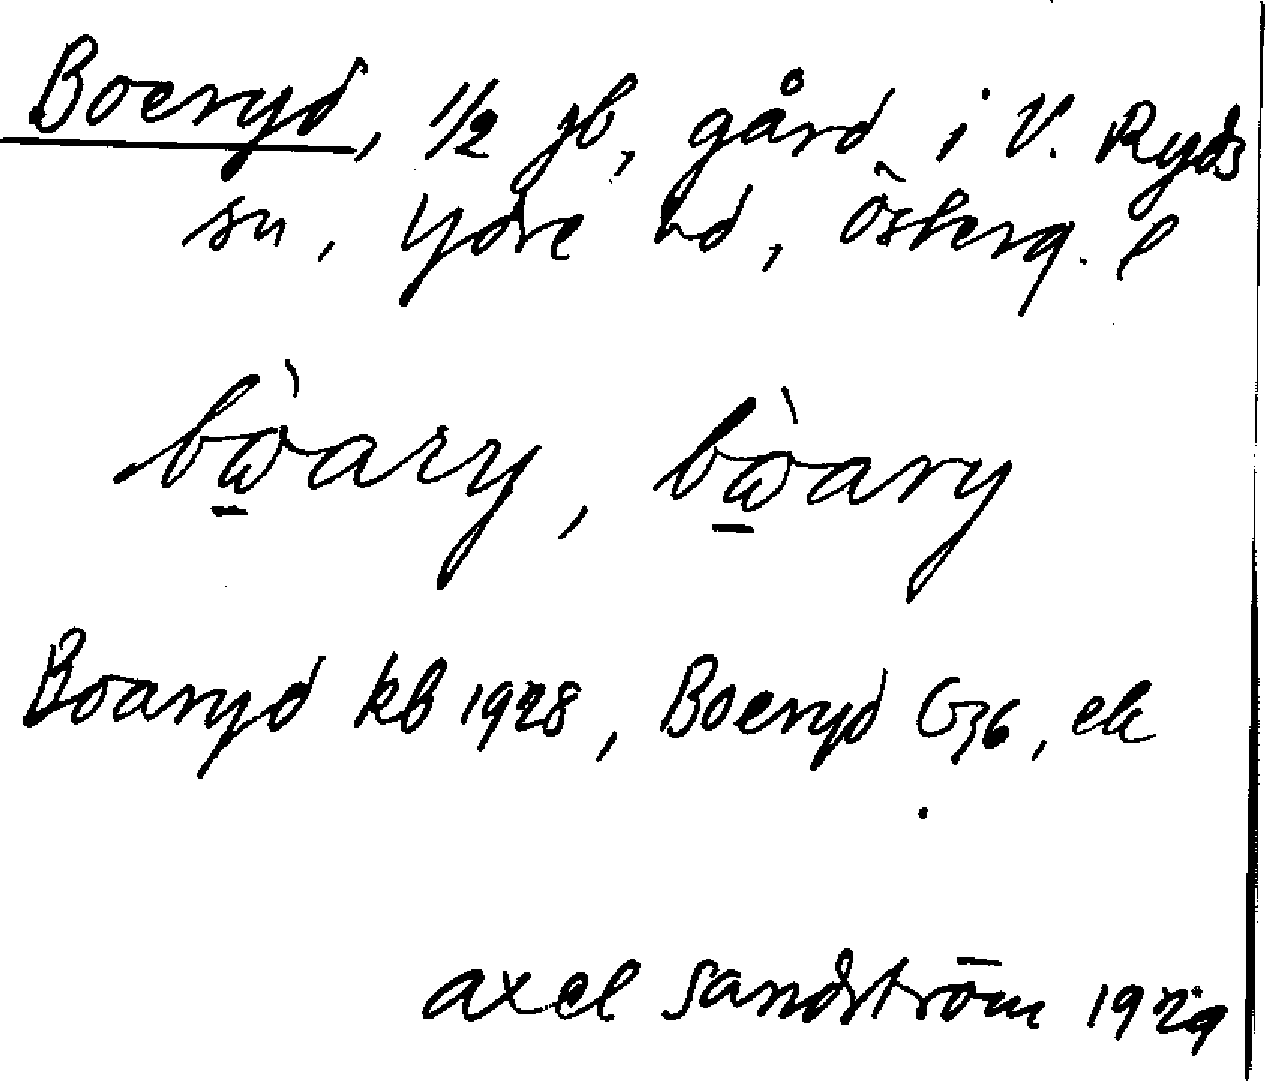 Boeryd, 1/2 jb, gård i V. Ryds
sn, Ydre hd, Österg. l
bωàary, bωàary
Boaryd kb 1928, Boeryd G36, ek
axel sandström 1929